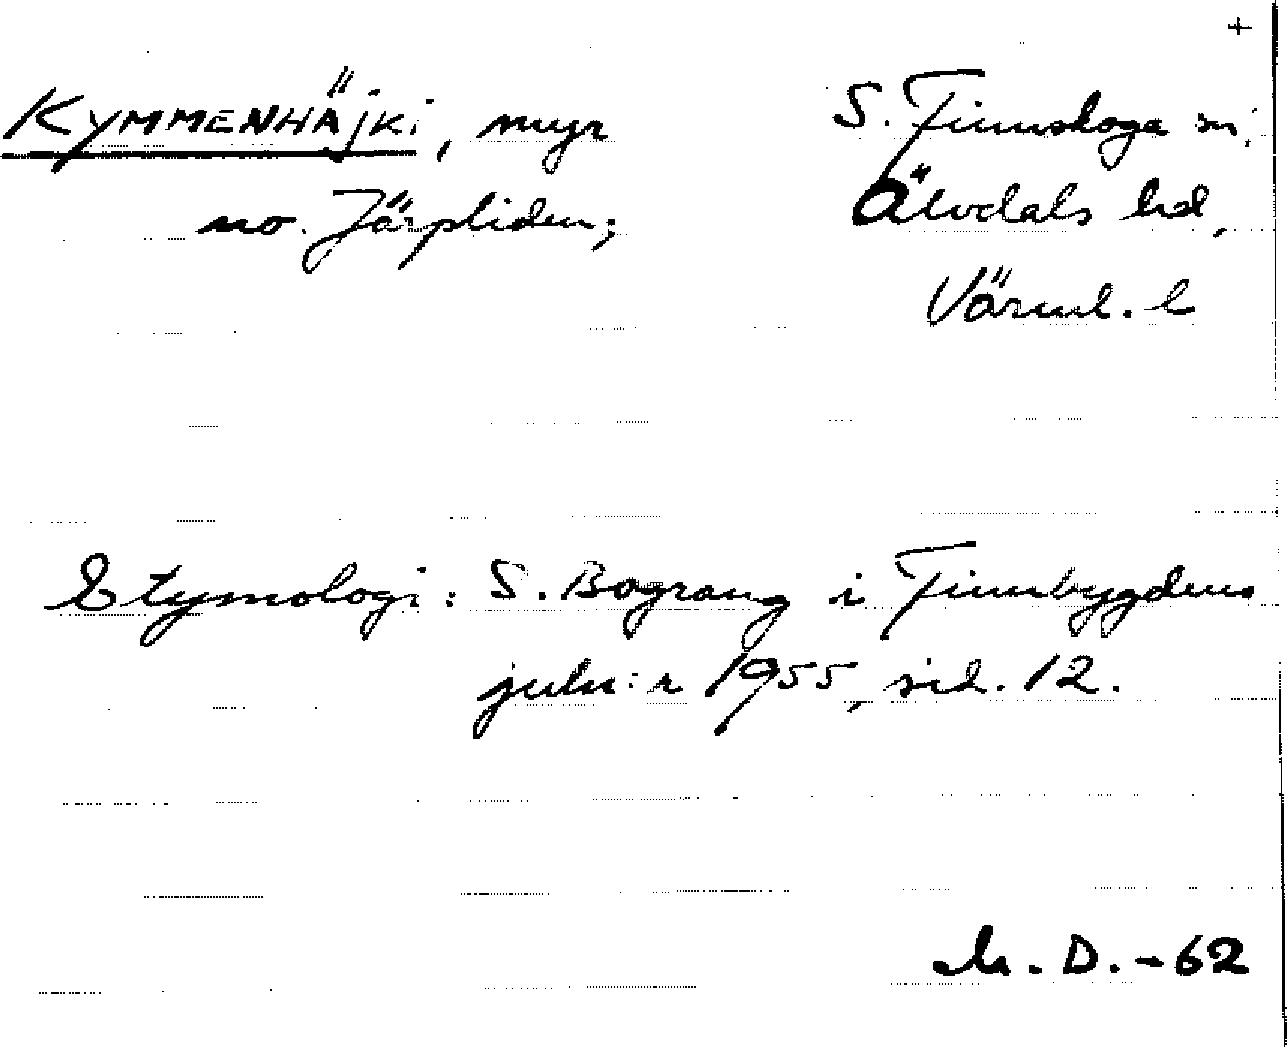 +
KYMMENHÄJKI, myr
no. Järpliden;
S. Finnskoga sn,
Älvdals hd,
Värml. l
Etymologi: S. Bograng i Finnbygdens
juln:r 1955, sid. 12.
M. D. -62